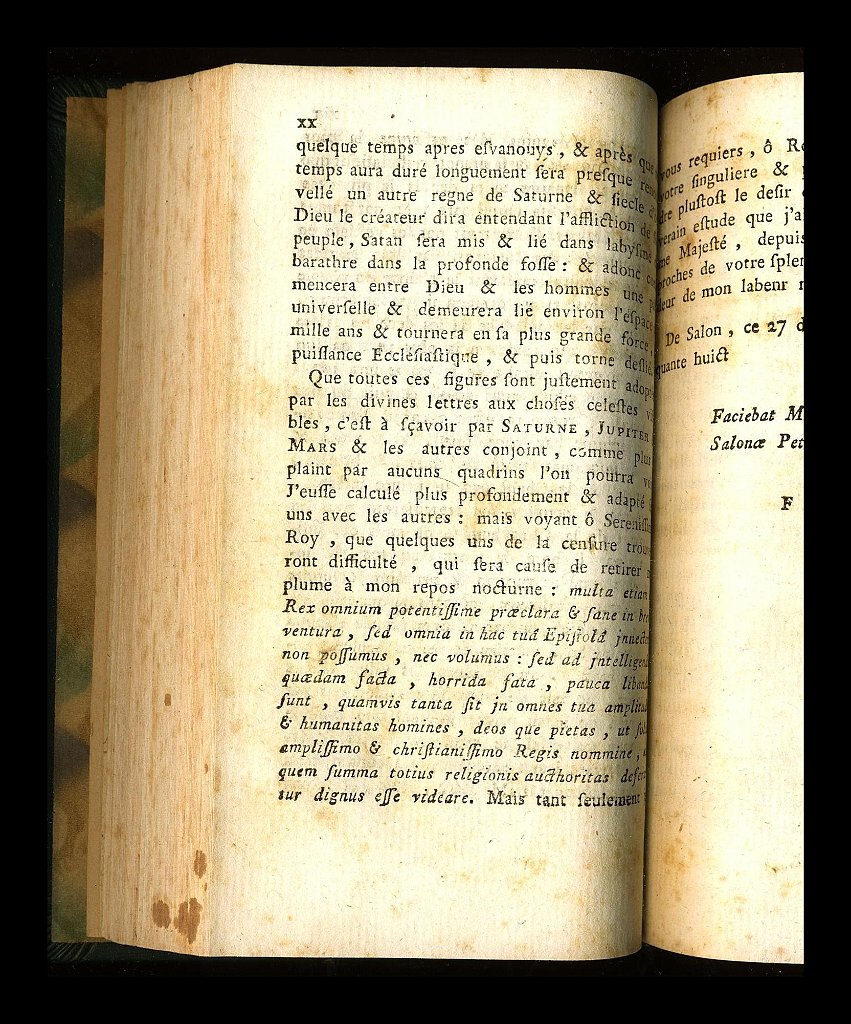 xx
quelque temps apres eſvanouys, & après que
temps aura duré longuement ſera preſque
vellé un autre regne de Saturne & ſiecle
Dieu le créateur dira entendant l'affliction de
peuple, Satan ſera mis & lié dans
barathre dans la profonde foſſe : & adonc
mencera entre Dieu & les hommes une
univerſelle & demeurera lié environ l'eſpace
mille ans & tournera en ſa plus grande force
puiſſance Eccléſiaſtique, & puis torne
Que toutes ces figures ſont juſtement
par les divines lettres aux choſes celeſtes
bles, c'eſt à ſçavoir par SATURNE, JUPITER
MARS & les autres conjoint, comme plus
plaint par aucuns quadrins l'on pourra
J'euſſe calculé plus profondement & adapté
uns avec les autres : mais voyant ô
Roy, que quelques uns de la cenſure
ront difficulté, qui ſera cauſe de retirer
plume à mon repos nocturne : multa etiam
Rex omnium potentiſſime præclara & ſane in
ventura, ſed omnia in hac tuâ Epiſtolâ
non poſſumus, nec volumus : ſed ad
quædam facta, horrida fata, pauca
ſunt, quamvis tanta ſit jn omnes tua
& humanitas homines, deos que pietas, ut
ampliſſimo & chriſtianiſſimo Regis nommine,
quem ſumma totius religionis aucthoritas
tur dignus eſſe videare. Mais tant ſeulement
vous requiers, ô
votre ſinguliere &
pluſtoſt le deſir
eſtude que j'ai
Majeſté, depuis
de votre
de mon labenr
De Salon, ce 27
quante huict
Faciebat M
Salonæ Pet
F